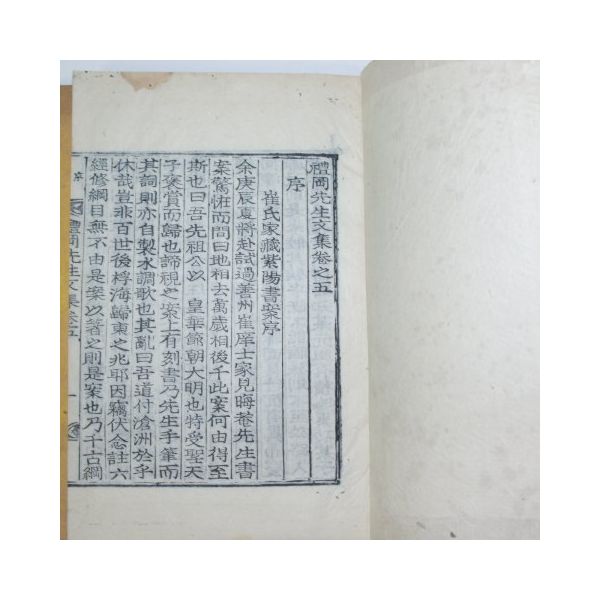 禮岡先生文集卷之五
序
崔氏家藏紫陽書案序
余庚辰夏將赴試過善州崔庠士家見晦菴先生書
案驚惟而問曰地相去萬歲相後千此案何由得至
斯也曰吾先祖公以 皇華節朝大明也特受聖天
子褒賞而歸也諦視之案上有刻書乃先生手筆而
其詞則亦自製水調歌也其亂曰吾道付滄洲於乎
休哉豈非百世後桴海歸東之兆耶因竊伏念註六
經修綱目無不由是案以著之則是案也乃千古綱
禮岡先生文集卷五
序
一